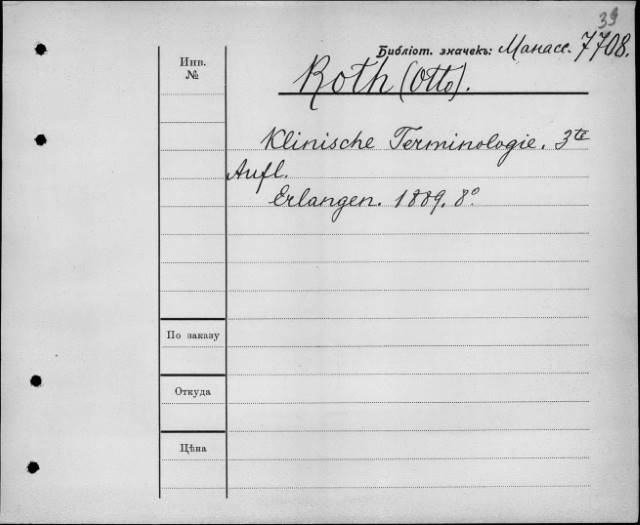 33
Библіот. значекъ: Манасс. 7708.
Инв.
№
Roth (Otto).
Klinische Terminologie. 3te
Aufl.
Erlangen. 1889. 8º
По заказу
Откуда
Цѣна